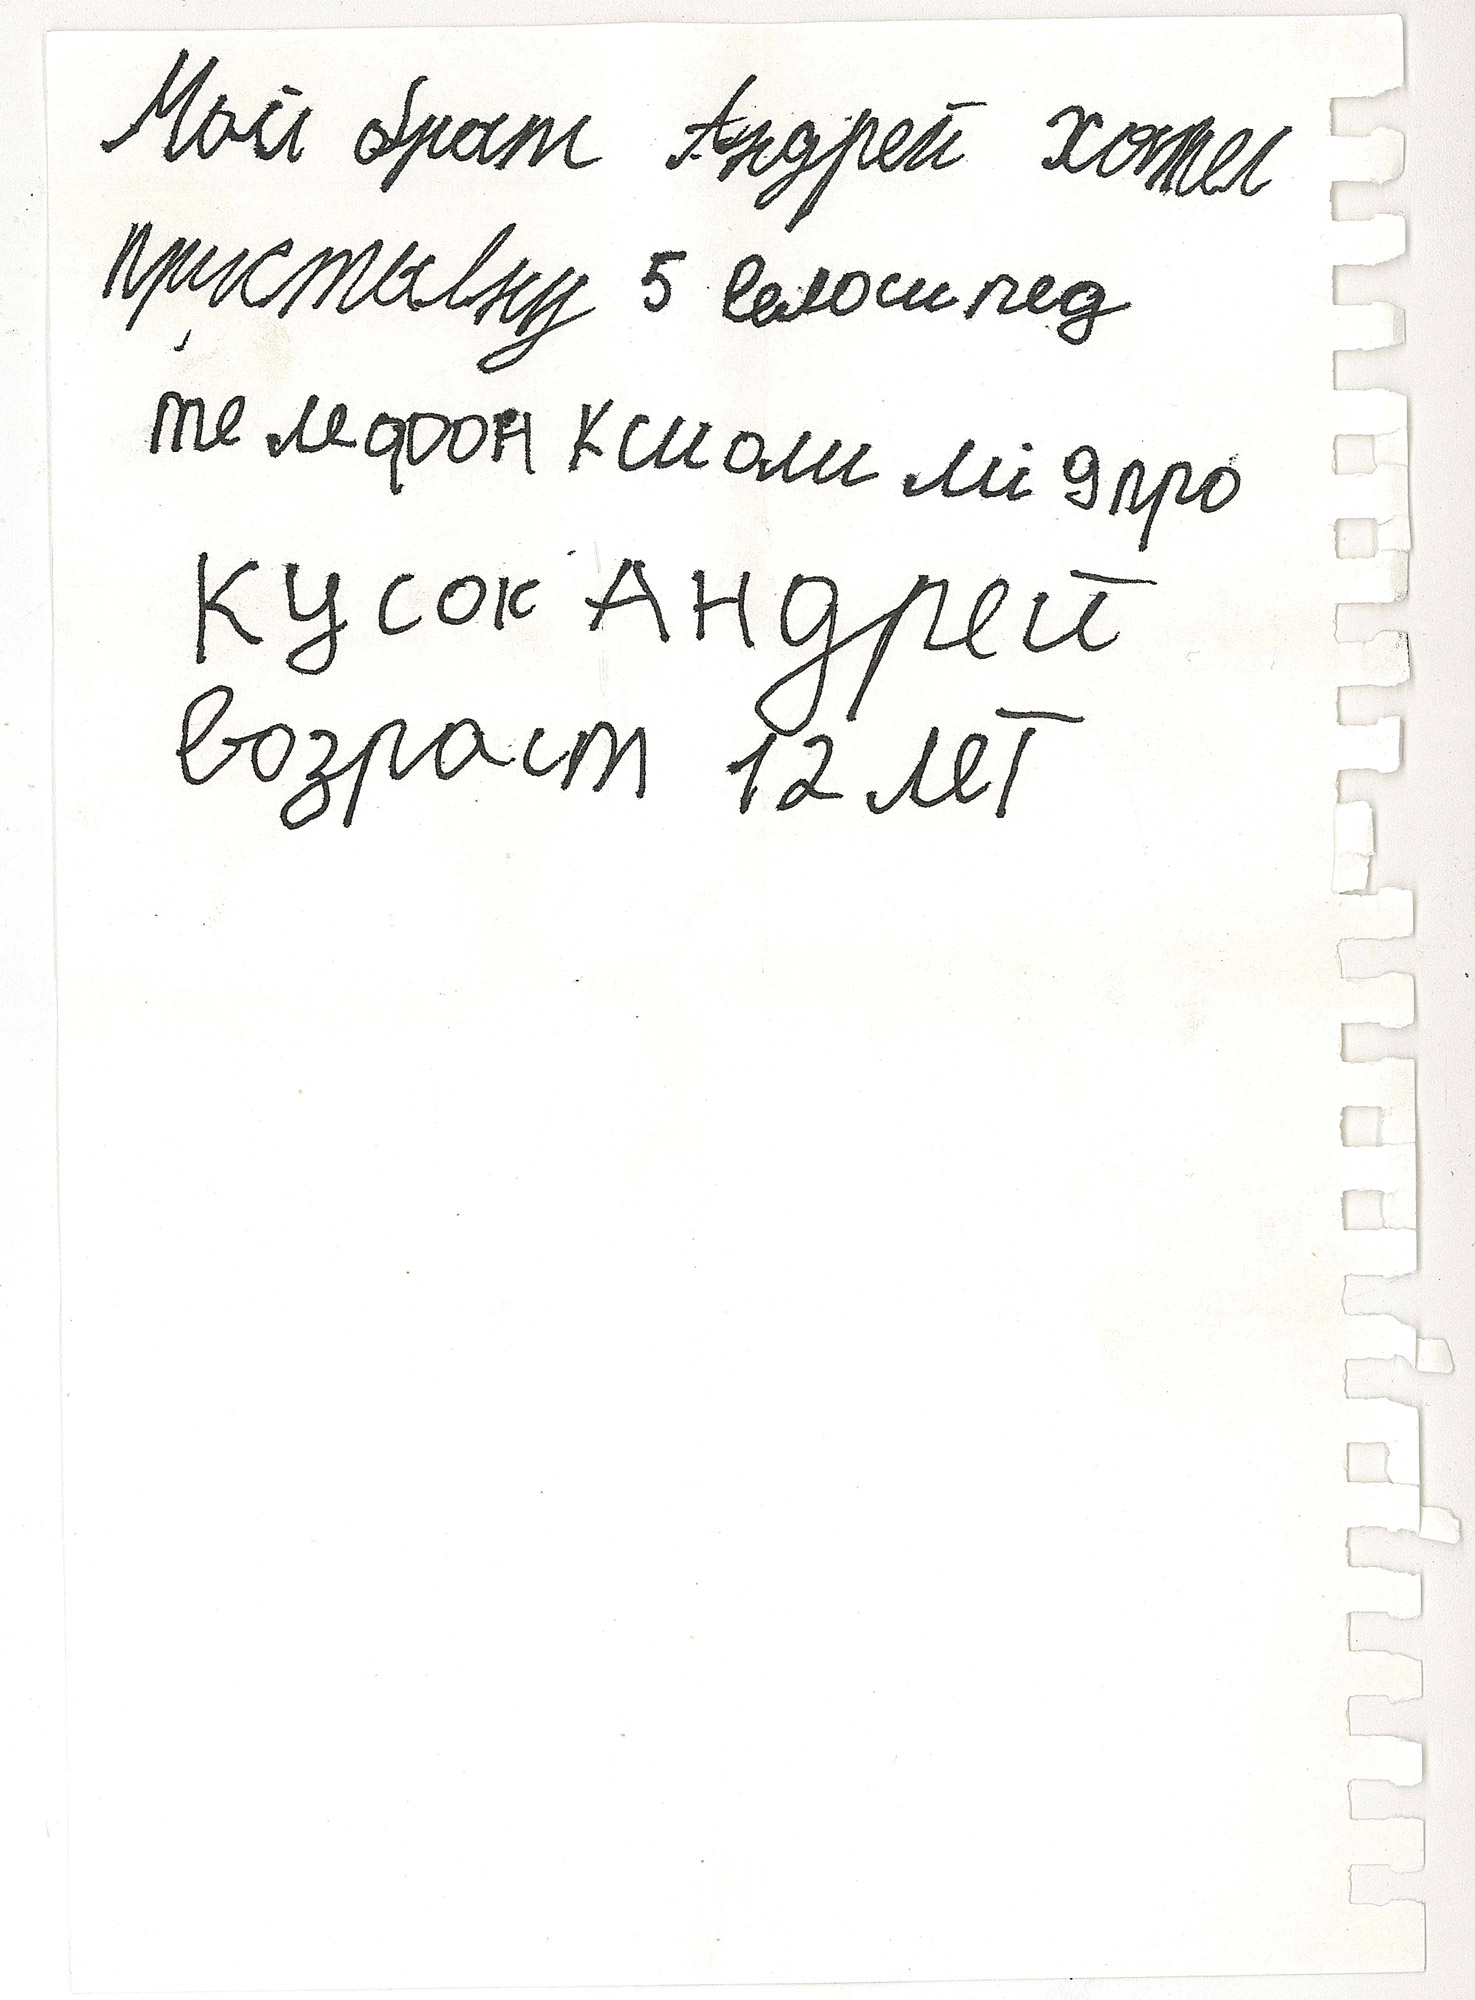 Мой брат Андрей хотел
приставку 5 велосипед
телефон ксиоми мі 9 про
кусок Андрей
возраст 12 лет